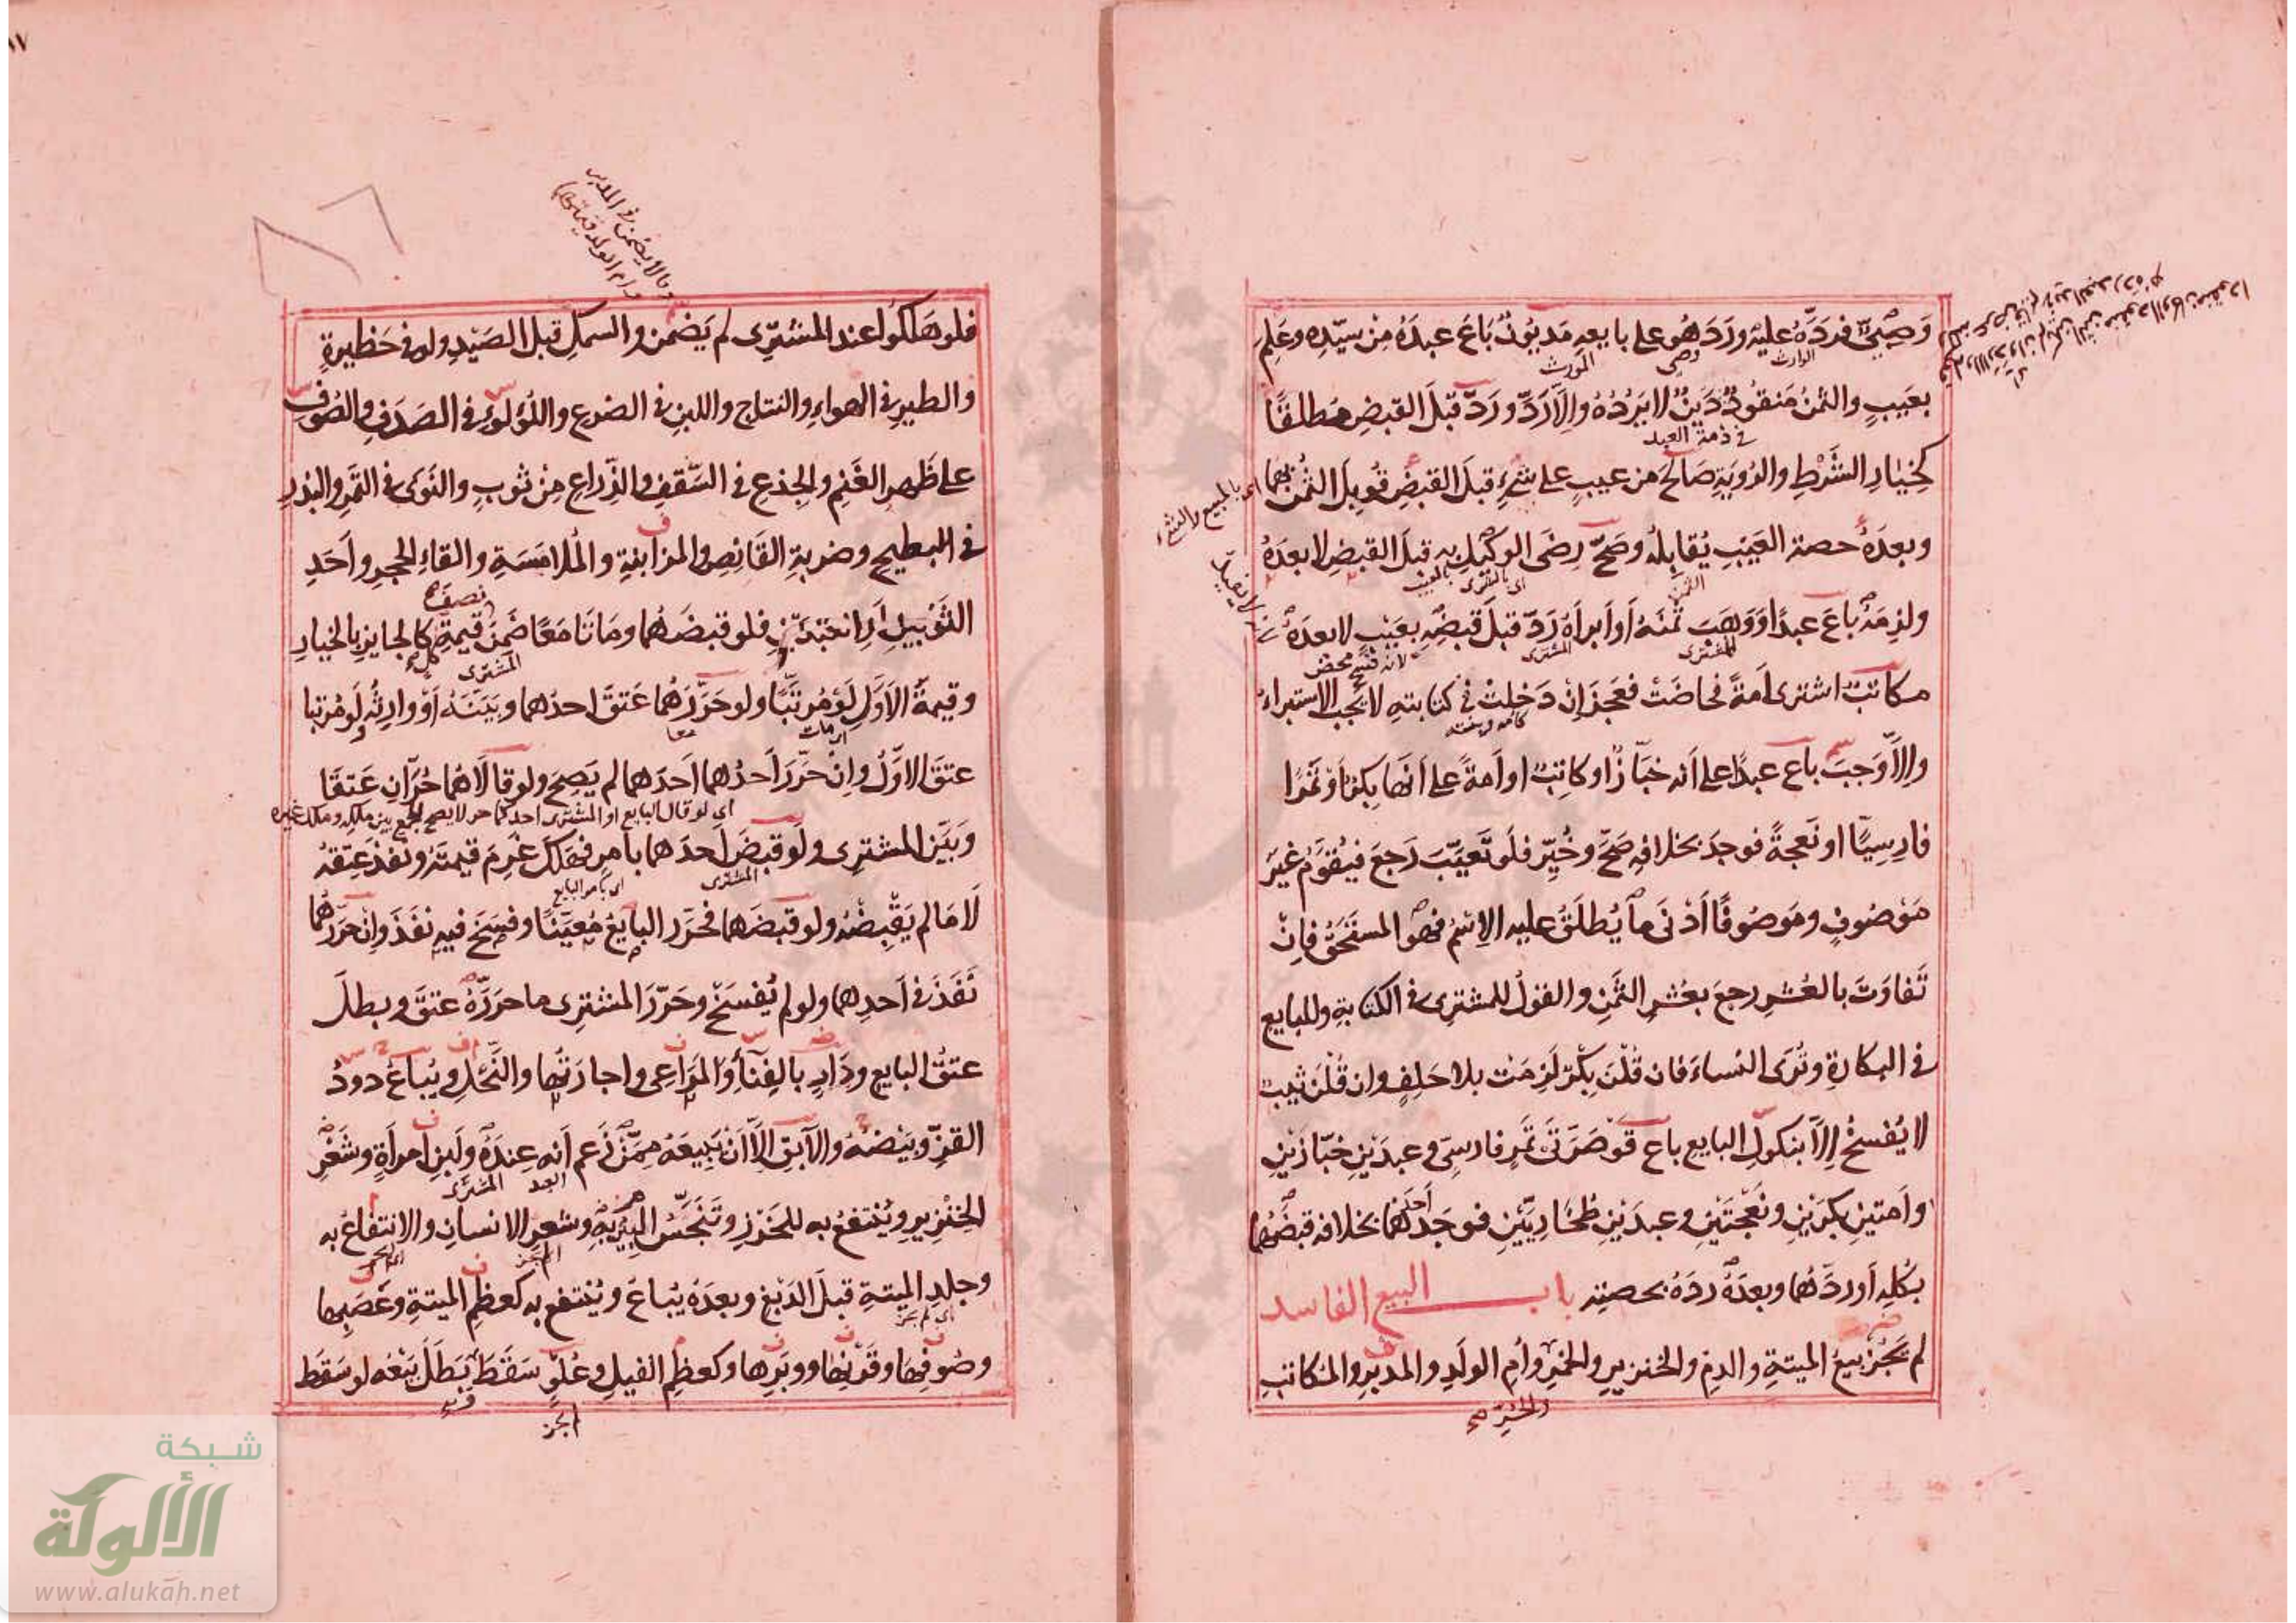 وَصِيٌّ فردَّهُ عليه وردَ هُو على بايعهِ مَديُونٌ بَاعَ عبدَهُ مِنْ سيّدِه وعَلِمَ
الوارث وصى المورث
بعَيبٍ والثمنُ مَنقودٌ دَينٌ لا يَرُدُهُ وإلاَّ رَدَّ ورَدَّ قبلَ القبضِ مُطلقًا
فى ذمة العبد
كخِيَارِ الشَّرْطِ والرُؤيَةِ صَالحَ من عيبٍ على شَيءٍ قبلَ القبضِ قُوبِلَ الثمنُ بهمَا
وبعدَهُ حصة العَيْبِ يُقابلهُ وصَحَّ رِضَى الوكيلِ بهِ قبلَ القبضِ لا بعدَهُ
الثمن اى بالمشترى بالعيب
ولزمَهُ بَاعَ عبدًا ووَهَبَ ثمنَهُ أو أبرأهُ رَدَّ قبلَ قبضِهِ بعَيْبٍ لا بعدَهُ
للمشترى المشترى لانه فسخ محض
مكاتبٌ اشترى أمةً فحاضَتْ فعَجَزَ إنْ دَخلتْ فى كتابتهِ لا يجب الاستبراءُ
كامه وبنته
وإلاّ وَجبَ باع عبدًا على أنه خبَّازٌ او كاتبٌ او أمةً على أنّهَا بِكرٌ أوْ تمرًا
فارِسِيًّا او نَعجةً فوجدَ بخلافِهِ صَحَّ وخُيِّرَ فلو تَعَيَّبَ رَجعَ فيُقوَّمُ غيرَ
مَوْصُوفٍ ومَوصُوفًا أدْنَى ما يُطلَقُ عليه الاِسْمُ فهو المستَحَقُّ فإنْ
تَفاوَتَ بالعُشرِ رجعَ بعُشرِ الثَّمنِ والقولُ للمشترِى فى الكتابةِ وللبايع
فى البكارةِ وتُرَى النساءَ فان قُلْنَ بِكْرٌ لَزِمَتْ بلا حَلِفٍ وان قُلْنَ ثيبٌ
لا يُفْسخُ إلاّ بنكولِ البايع باع قَوْصَرَتَى تمرٍ فارسىٍ وعبدَيْنِ خبّازَيْنِ
وأمتينِ بكرَيْنِ ونَعْجَتَيْنِ وعبدَيْنِ طُخَارِيَّيْنِ فوجَدَ أحَدَهُما بخلافه قبضَهُما
بكُلهِ أو ردَّهُما وبعدَهُ ردَهُ بحصتِهِ باب البيع الفاسد
لم يَجُزْ بيعُ الميتةِ والدمِ والخنزيرِ والخمرِ وأم الولَدِ والمدبرِ والمكاتبِ
والحُرِّ صح
اى بالمبيع والشىء
وما لا يضمن فى المدبر
وام الولد قيمتها
فلو هَلكُوا عند المشترِى لم يَضْمن والسمكِ قبل الصَيْدِ ولو فى حَظيرةٍ
والطيرِ فى الهواءِ والنتاج واللبنِ فى الضرعِ واللُؤلُوءِ فى الصَدَفِ والصُوفِ
على ظَهرِ الغَنمِ والجِذعِ فى السَّقفِ والذِّراعِ مِنْ ثوبٍ والنَوَى فى التَمرِ والبذرِ
فى البطيخِ وضربةِ القَانِصِ والمزابنةِ والمُلامَسَةِ والقاءِ الحجرِ وأحَدِ
نصف صح
الثَوْبينِ أو العَبْدَيْنِ فلو قبضَهُما ومَاتا مَعًا ضَمِنَ قيمةِ كالجايزِ بالخيارِ
المشترى كل
وقيمةُ الأوّلِ لَوْ مُرتَّبًا ولو حَرَّرَهُما عَتقَ احدُهما وبَيَنَهُ أوْ وارِثُه لَو مُرتبا
اى مات معا
عتقَ الاوّلُ وإنْ حَرَّرَ أحدُهما أحدَهما لم يَصِحَ ولو قالاَ هُما حُرَّانِ عَتقَا
اى لو قال البايع او المشترى احدكما حر لا يصح لجمع بين ملكه وملك غيره
وبَيَّن المشترِى ولو قبضَ أحدَهما بأمرٍ فهَلكَ غَرِمَ قيمتَهُ ونفذَ عِتقهُ
المشترى اى بامر البايع
لاَ مَا لم يَقْبِضْهُ ولو قبضَهما فحَرّر البايعُ مُعيَّنًا وفسَخَ فيهِ نفَذَ وإنْ حَرّرهُما
نَفَذَ فى أحدِهما ولو لم يُفْسَخْ وحَرّرَ المشترِى ما حرَرَهُ عتقَ وبطلَ
عتقُ البايعِ ودَارٍ بالفِنَاءِ والمَرَاعِى واجارَتُها والنَّحلِ ويُباعُ دودُ
القزِّ وبَيْضهُ والآبقِ إلاّ أنْ يَبيعَهُ مِمَّنْ زَعم أنه عِندَهُ ولَبنِ امرأةٍ وشَعْرِ
العبد المشترى
الخنْزيرِ ويُنْتفعُ به للخَرْزِ وتَنَجَّسُ البِيرُ بِهِ وشعرِ الانسانِ والانتفاعُ به
وجلدِ الميتةِ قبلَ الدَبْغِ وبعدَهُ يُباعُ ويُنْتفع به كعظمِ الميتةِ وعَصَبِها
اى لم يجز
وصُوفِهَا وقَرْنِهَا ووبَرِها وكعظمِ الفيلِ وعُلْوٍ سَقَطَ بَطَلَ بَيْعُه لو سَقَط
شبكة
الألوكة
www.alukah.net